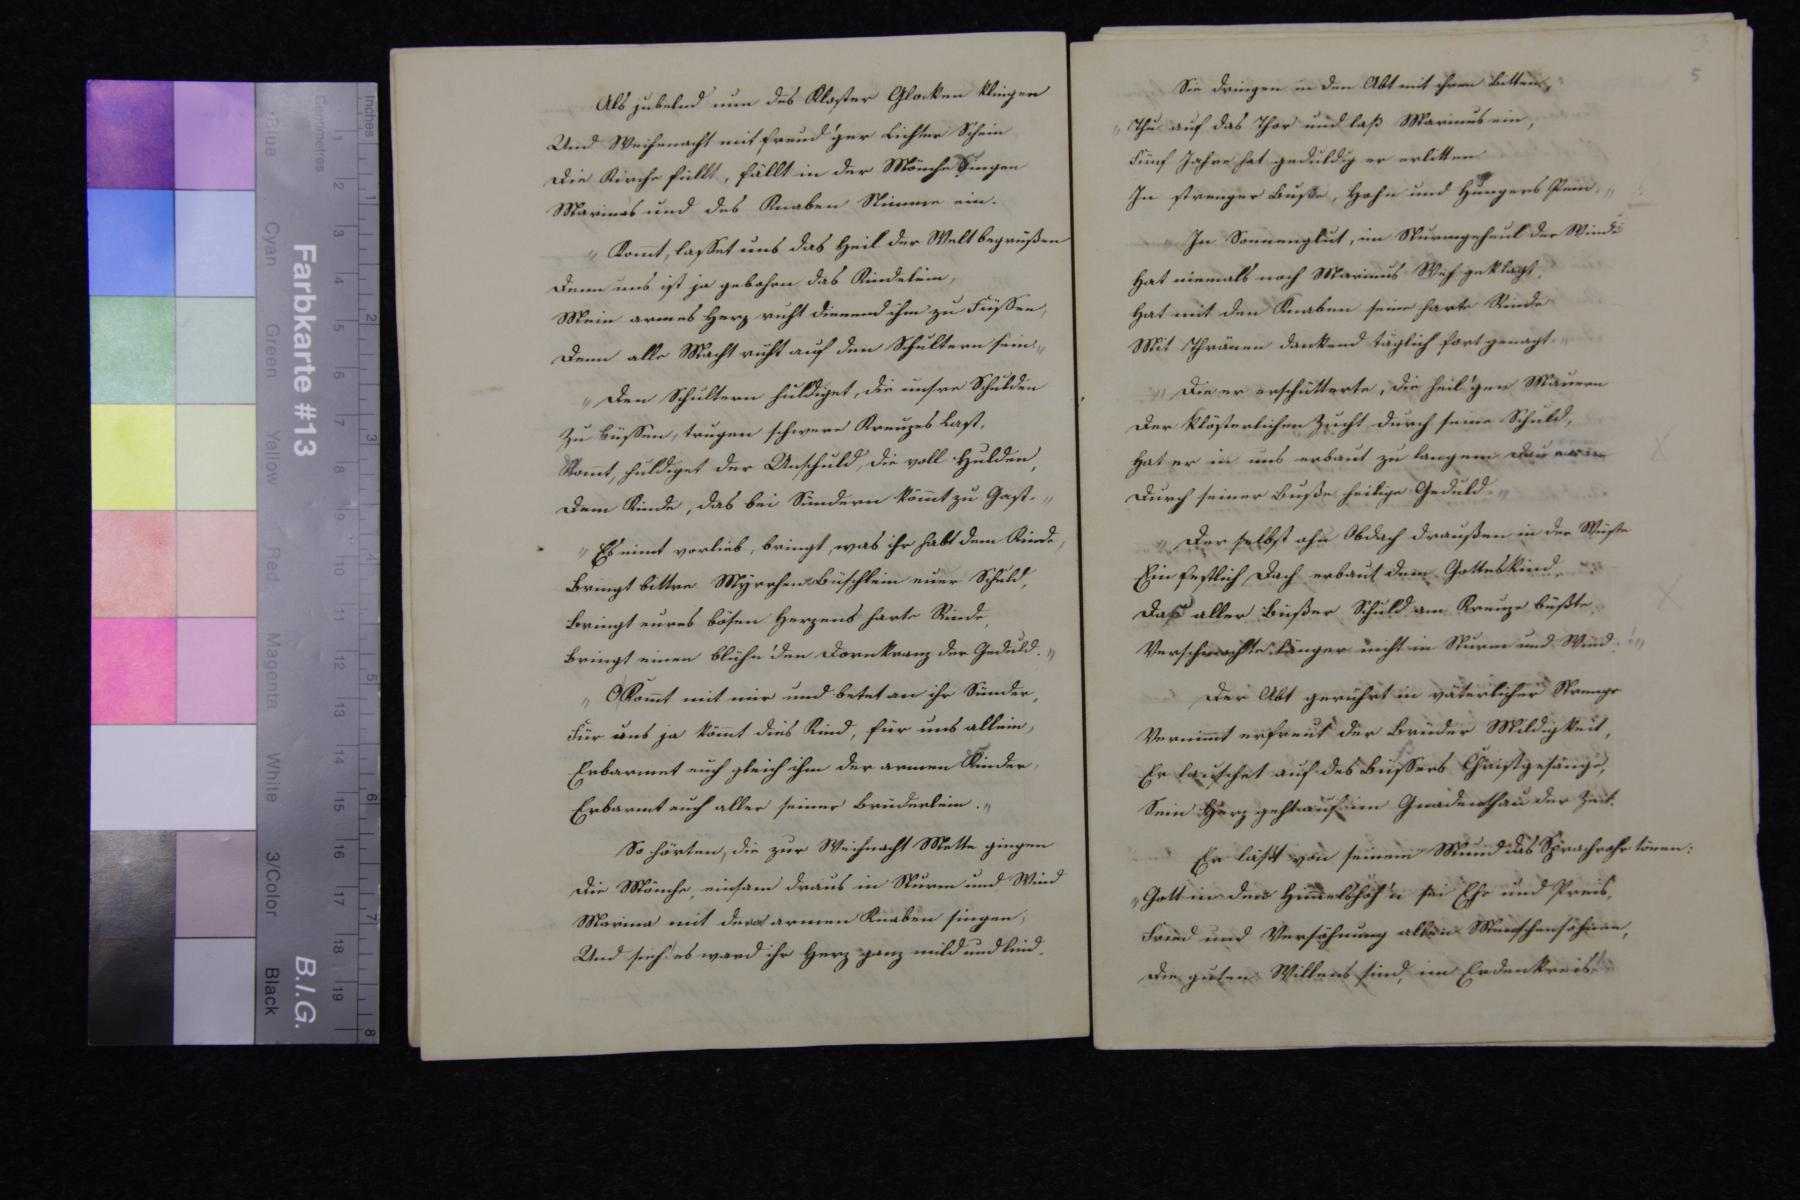 Als jubelnd nun des Kloster Glocken klingen
Und Weihenacht mit freud'ger Lichter Schein
Die Kirche füllt, fällt in der Mönche Singen
Marinas und des Knaben Stimme ein.
„Kom̅t, lasset uns das Heil der Welt begrüßen
Denn uns ist ja gebohrn das Kindelein,
Mein armes Herz ruht dienend ihm zu Füssen,
Denn alle Macht ruht auf den Schultern sein."
„Den Schultern huldiget, die unsre Schulden
Zu büssen, trugen schwere Kreuzes Last,
Kom̅t, huldiget der Unschuld, die voll Hulden,
Dem Kinde, das bei Sündern köm̅t zu Gast."
„Es nim̅t vorlieb, bringt, was ihr habt dem Kinde,
Bringt bittre Myrrhen Büschlein eurer Schuld,
Bringt eures bösen Herzens harte Rinde,
Bringt einen blüh'nden Dornkranz der Geduld."
„O Kom̅t mit mir und betet an ihr Sünder,
Für uns ja köm̅t dies Kind, für uns allein,
Erbarmet euch gleich ihm der armen Kinder,
Erbarmt euch aller seiner Brüderlein."
So hörten, die zur Weihnacht Mette gingen
Die Mönche, einsam draus in Sturm und Wind
Marina mit dem armen Knaben singen,
Und sieh! es ward ihr Herz ganz mild und lind.
3
5
Sie dringen in den Abt mit ihren Bitten:
„Thu auf das Thor und laß Marinus ein,
Fünf Jahre hat geduldig er erlitten
In strenger Buße, Hohn und Hungers Pein."
„In Sonnenglut, im Sturmgeheul der Winde
Hat niemals noch Marinus Weh geklagt,
Hat mit dem Knaben seine harte Rinde
Mit Thränen dankend täglich fort genagt."
„Die er erschütterte, die heil'gen Mauern
Der klösterlichen Zucht durch seine Schuld,
Hat er in uns erbaut zu langem Dauern
Durch seiner Buße heilige Geduld."
„Der selbst ohn Obdach draußen in der Wüste
Ein festlich Dach erbaut dem Gotteskind,
Das aller Büßer Schuld am Kreuze büßte,
Verschmachte länger nicht in Sturm und Wind!"
Der Abt gerührt in väterlicher Strenge
Vernim̅t erfreut der Brüder Mildigkeit,
Er lauschet auf des Büssers Christgesänge,
Sein Herz geht auf im Gnadenthau der Zeit.
Er läßt von seinem Mund das Sprachrohr tönen:
„Gott in den Him̅elshöh'n sei Ehr und Preis,
Fried und Versöhnung allen Menschensöhnen,
Die guten Willens sind, im Erdenkreis!
Farbkarte #13
B.I.G.
Inches
Centimetres
1
2
3
4
5
6
7
8
9
10
11
12
13
14
15
16
17
18
19
1
2
3
4
5
6
7
8
Blue
Cyan
Green
Yellow
Red
Magenta
White
3/Color
Black